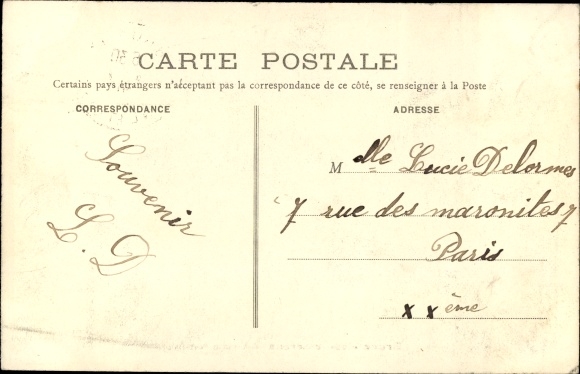 CARTE POSTALE
Certains pays étrangers n'acceptant pas la correspondance de ce côté, se renseigner à la Poste
CORRESPONDANCE
ADRESSE
Souvenir
L. D
M elle Lucie Delormes
7 rue des maronites 7
Paris
XX ème